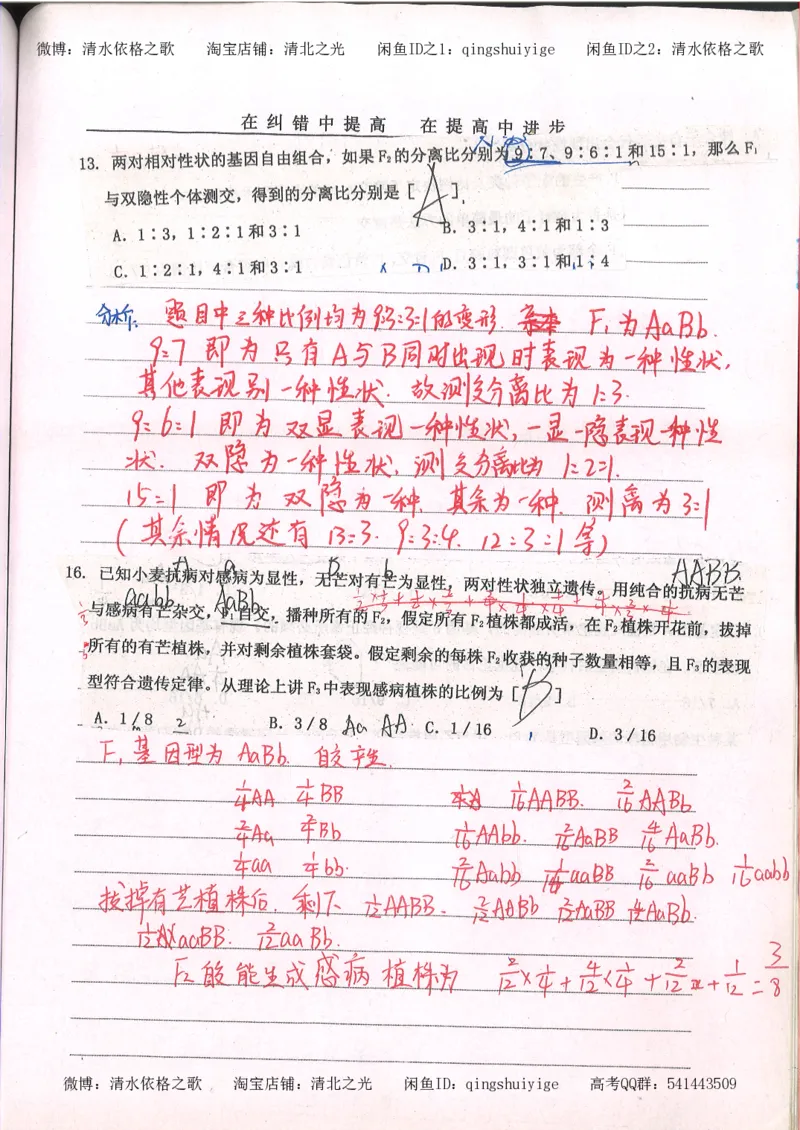 微博：清水依格之歌 淘宝店铺：清北之光 闲鱼ID之1：qingshuiyige 闲鱼ID之2：清水依格之歌
在纠错中提高 在提高中进步
13. 两对相对性状的基因自由组合，如果F₂的分离比分别为9∶7、9∶6∶1和15∶1，那么F₁
与双隐性个体测交，得到的分离比分别是 [ A ]
A. 1∶3，1∶2∶1和3∶1 B. 3∶1，4∶1和1∶3
C. 1∶2∶1，4∶1和3∶1 D. 3∶1，3∶1和1∶4
分析: 题目中三种比例均为9:3:3:1的变形. F₁为AaBb.
9:7 即为只有A与B同时出现时表现为一种性状,
其他表现别一种性状. 故测交分离比为1:3.
9:6:1 即为双显表现一种性状, 一显一隐表现一种性
状. 双隐为一种性状, 测交分离比为 1:2:1.
15:1 即为双隐为一种, 其余为一种. 测离为3:1
(其余情况还有 13:3. 9:3:4. 12:3:1等)
A a B b AABB.
16. 已知小麦抗病对感病为显性，无芒对有芒为显性，两对性状独立遗传。用纯合的抗病无芒
aabb AaBb
与感病有芒杂交，F₁自交，播种所有的F₂，假定所有F₂植株都成活，在F₂植株开花前，拔掉
所有的有芒植株，并对剩余植株套袋。假定剩余的每株F₂收获的种子数量相等，且F₃的表现
型符合遗传定律。从理论上讲F₃中表现感病植株的比例为 [ B ]
A. 1/8 B. 3/8 Aa AA C. 1/16 D. 3/16
F₁基因型为 AaBb. 自交产生.
1/4AA 1/4BB 1/16AABB. 2/16AABb
2/4Aa 2/4Bb 1/16AAbb. 2/16AaBB 4/16AaBb.
1/4aa 1/4bb. 2/16Aabb 1/16aaBB 2/16aaBb 1/16aabb
拔掉有芒植株后, 剩下 1/12AABB. 2/12AABb 2/12AaBB 4/12AaBb.
1/12aaBB. 2/12aaBb.
能生成感病植株为 2/12×1/4+4/12×1/4+2/12+1/12=3/8
微博：清水依格之歌 淘宝店铺：清北之光 闲鱼ID：qingshuiyige 高考QQ群：541443509